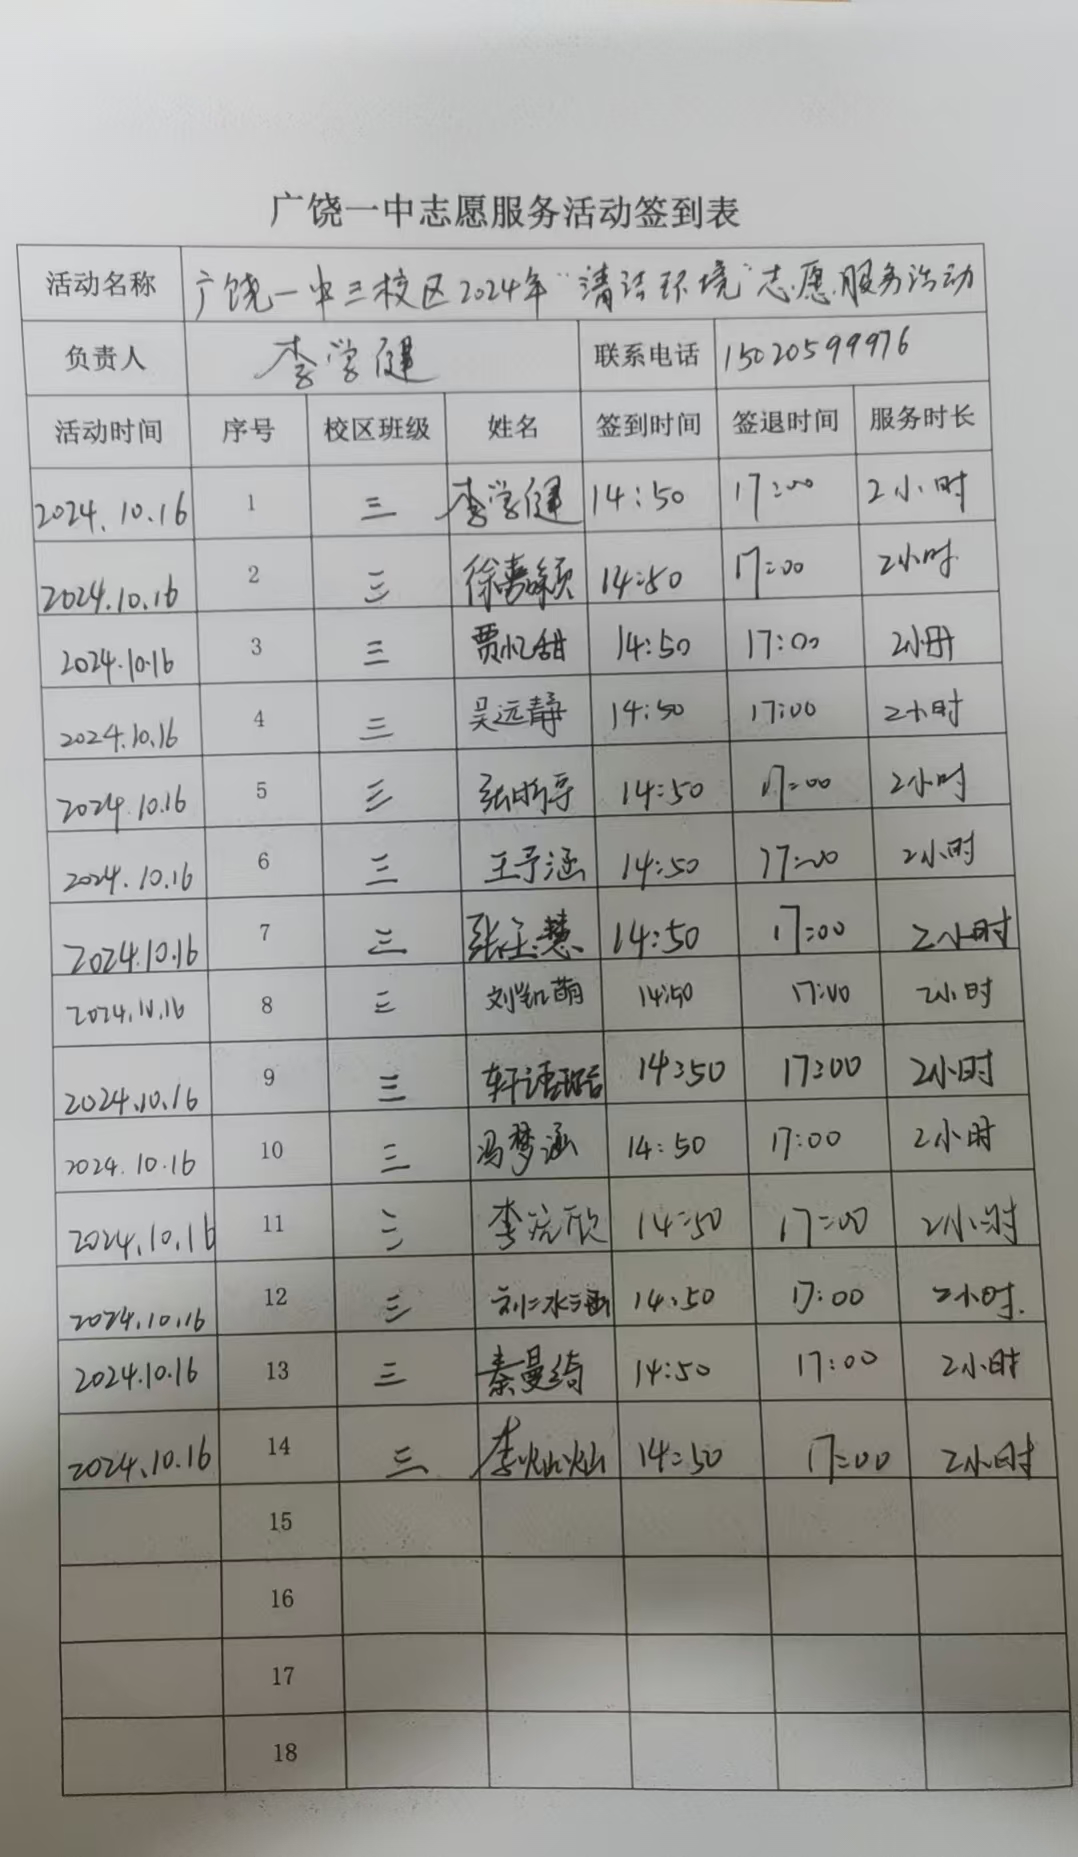 广饶一中志愿服务活动签到表
活动名称 广饶一中三校区2024年“清洁环境”志愿服务活动
负责人 李学健 联系电话 15020599976
活动时间 序号 校区班级 姓名 签到时间 签退时间 服务时长
2024.10.16 1 三 李学健 14:50 17:00 2小时
2024.10.16 2 三 徐嘉颖 14:50 17:00 2小时
2024.10.16 3 三 贾忆甜 14:50 17:00 2小时
2024.10.16 4 三 吴远静 14:50 17:00 2小时
2024.10.16 5 三 14:50 17:00 2小时
2024.10.16 6 三 王予涵 14:50 17:00 2小时
2024.10.16 7 三 14:50 17:00 2小时
2024.10.16 8 三 14:50 17:00 2小时
2024.10.16 9 三 14:50 17:00 2小时
2024.10.16 10 三 冯梦涵 14:50 17:00 2小时
2024.10.16 11 三 14:50 17:00 2小时
2024.10.16 12 三 14:50 17:00 2小时.
2024.10.16 13 三 秦曼绮 14:50 17:00 2小时
2024.10.16 14 三 李灿灿 14:50 17:00 2小时
15
16
17
18